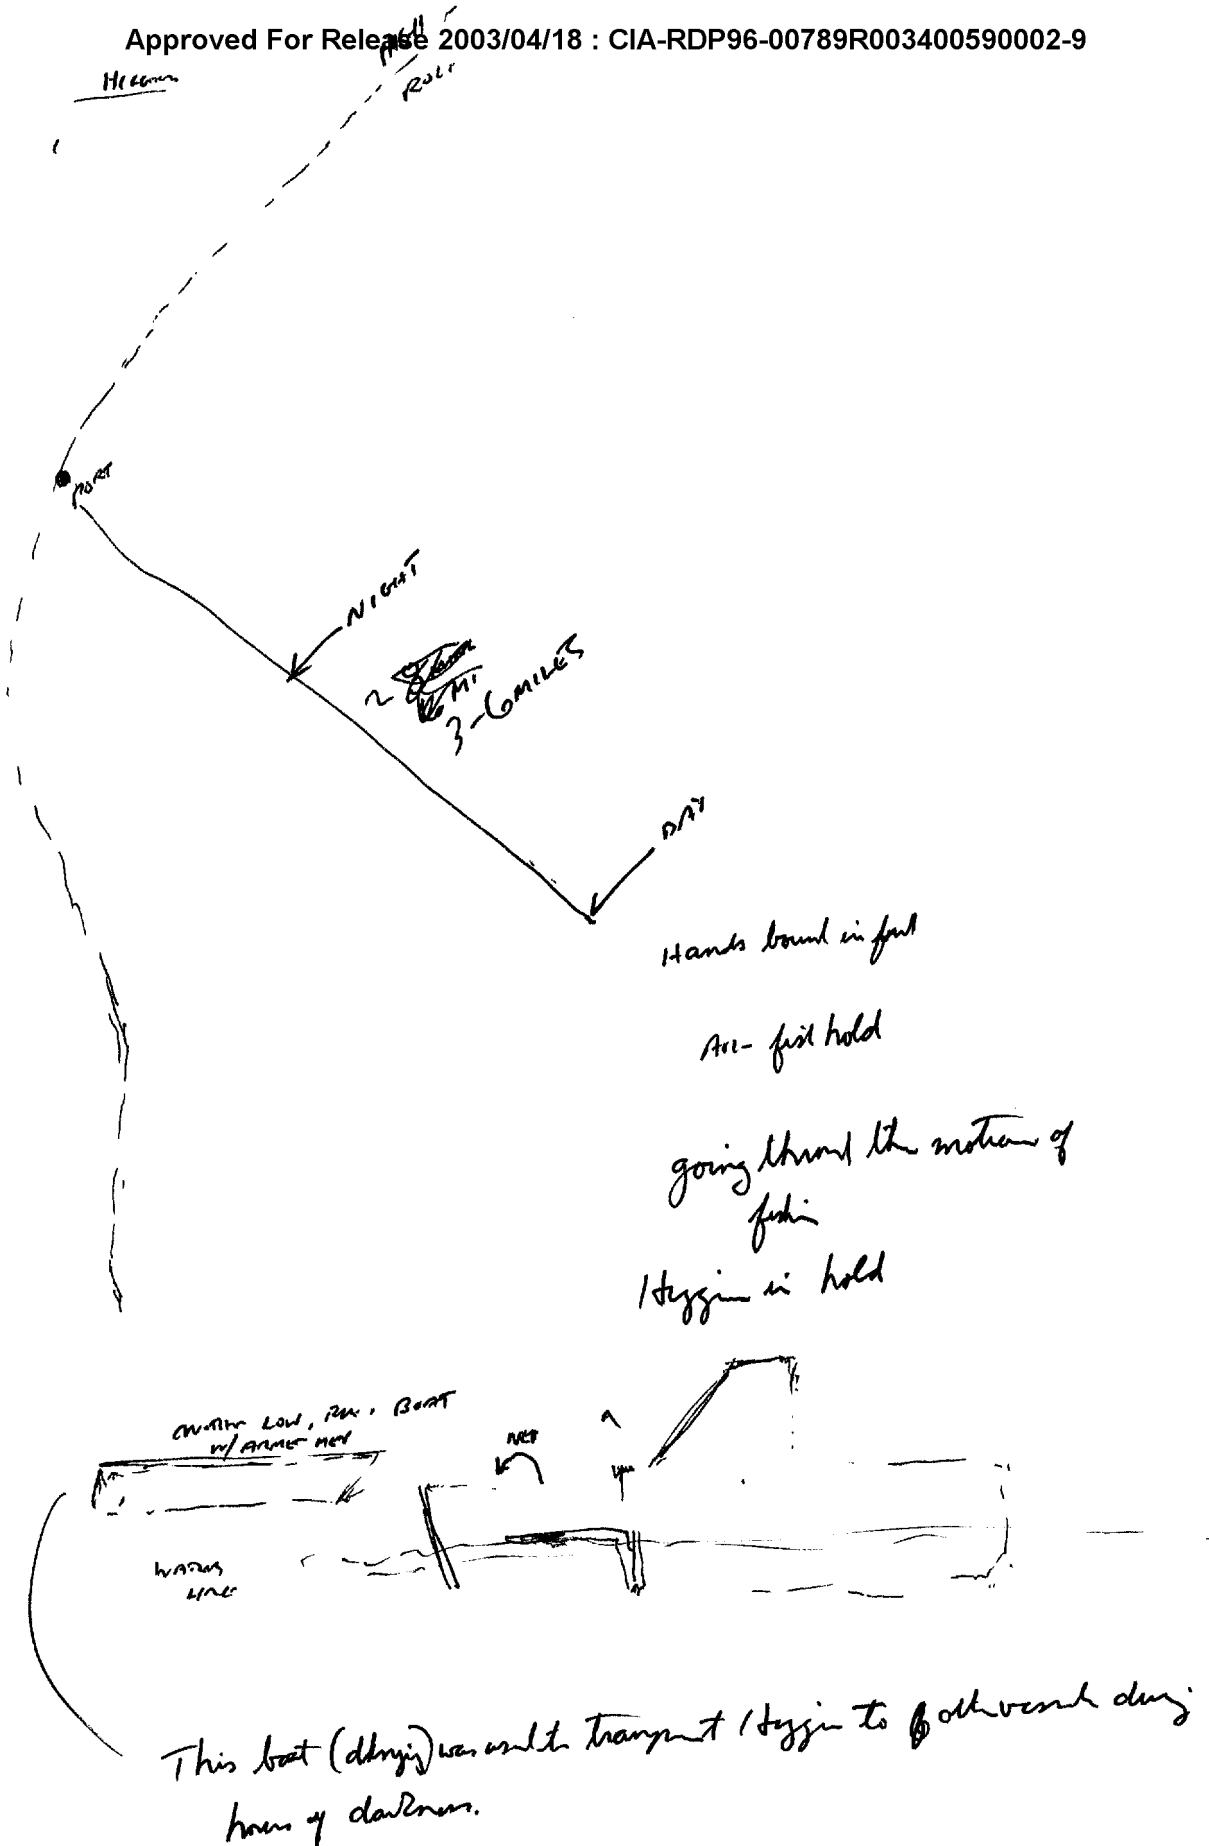 Approved For Release 2003/04/18 : CIA-RDP96-00789R003400590002-9
PORT
NIGHT
MI
3-6 MILES
DAY
Hands bound in
hold
going the motion of
Higgin in hold
LOW, BOAT
W/ ARMED MEN
NET
WATER
LINE
This boat (dhingy) was used to transport Higgin to other vessel during
hours of darkness.